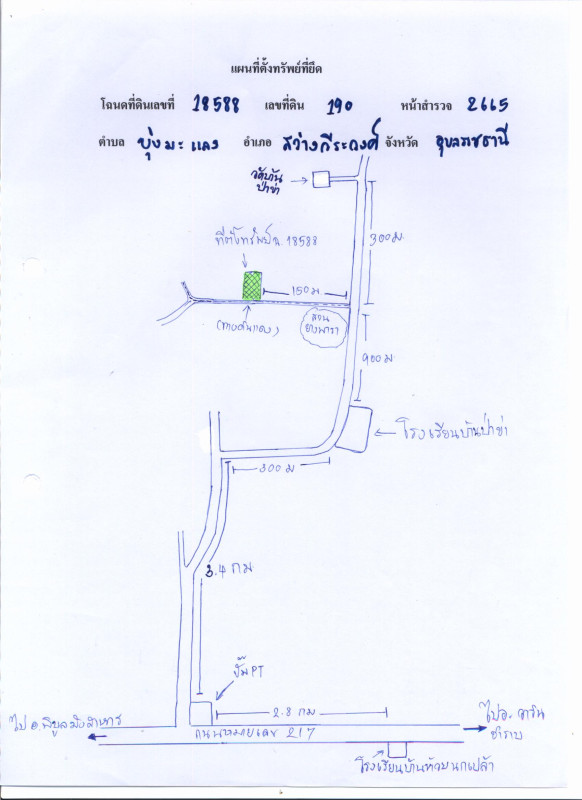 แผนที่ตั้งทรัพย์ที่ยึด
โฉนดที่ดินเลขที่ 18588 เลขที่ดิน 190 หน้าสำรวจ 2665
ตำบล บุ่งมะแลง อำเภอ สว่างวีระวงศ์ จังหวัด อุบลราชธานี
วัดบ้าน
ป่าข่า
300 ม
ที่ตั้งทรัพย์ น. 18588
150 ม
(ทางดินแดง)
สวน
ยางพารา
900 ม
โรงเรียนบ้านป่าข่า
300 ม
3.4 กม
ปั๊ม PT
2.8 กม
ไป อ.พิบูลมังสาหาร
ไป อ. วาริน
ชำราบ
ถนนหมายเลข 217
โรงเรียนบ้านห้วยนกเปล้า